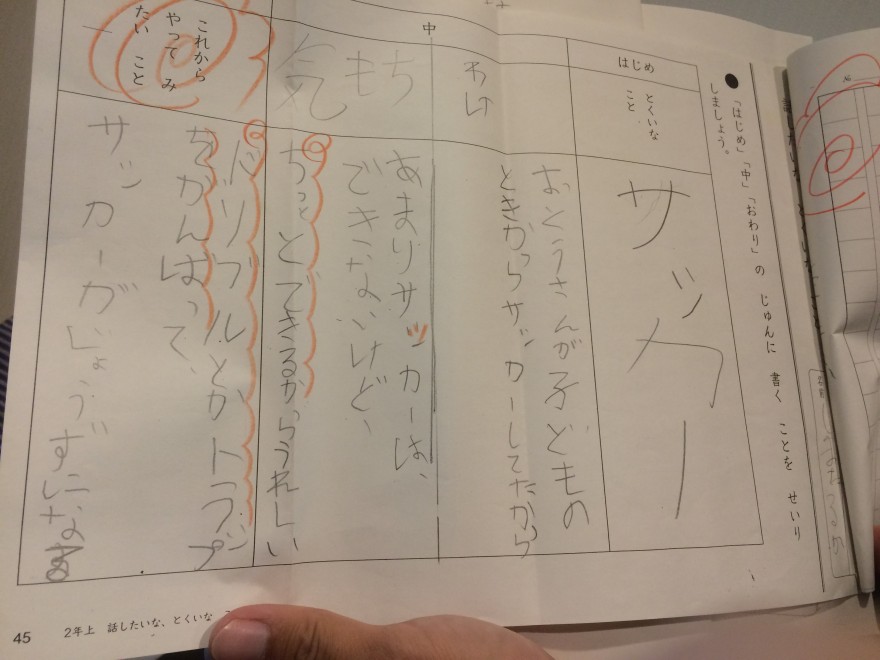 ● 「はじめ」「中」「おわり」の じゅんに 書く ことを せいり
しましょう。
はじめ
とくいな
こと
サッカー
中
わけ
おとうさんが子どもの
ときからサッカーしてたから
気もち
あまりサッカーは、
できないけど、
ちっとできるからうれしい
これから
やって み
たい こと
ドリブルとかトラップ
をがんばって、
サッカーがじょうずになる
45
2年上 話したいな、とくいな